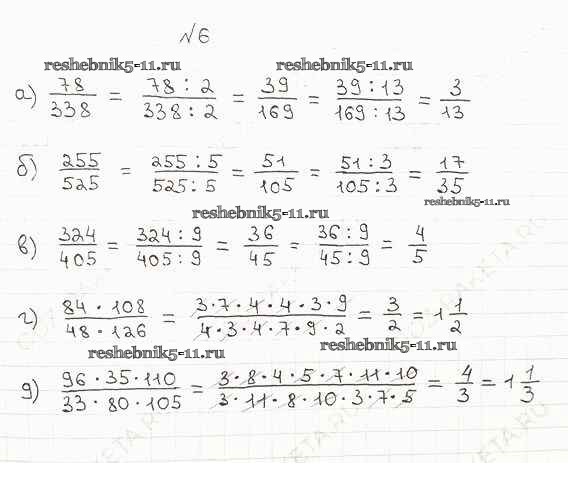 №6
reshebnik5-11.ru reshebnik5-11.ru
а) 78/338 = 78 : 2/338 : 2 = 39/169 = 39 : 13/169 : 13 = 3/13
б) 255/525 = 255 : 5/525 : 5 = 51/105 = 51 : 3/105 : 3 = 17/35
reshebnik5-11.ru
reshebnik5-11.ru
в) 324/405 = 324 : 9/405 : 9 = 36/45 = 36 : 9/45 : 9 = 4/5
г) 84 · 108/48 · 126 = 3·7·4·4·3·9/4·3·4·7·9·2 = 3/2 = 1 1/2
reshebnik5-11.ru reshebnik5-11.ru
д) 96·35·110/33·80·105 = 3·8·4·5·7·11·10/3·11·8·10·3·7·5 = 4/3 = 1 1/3